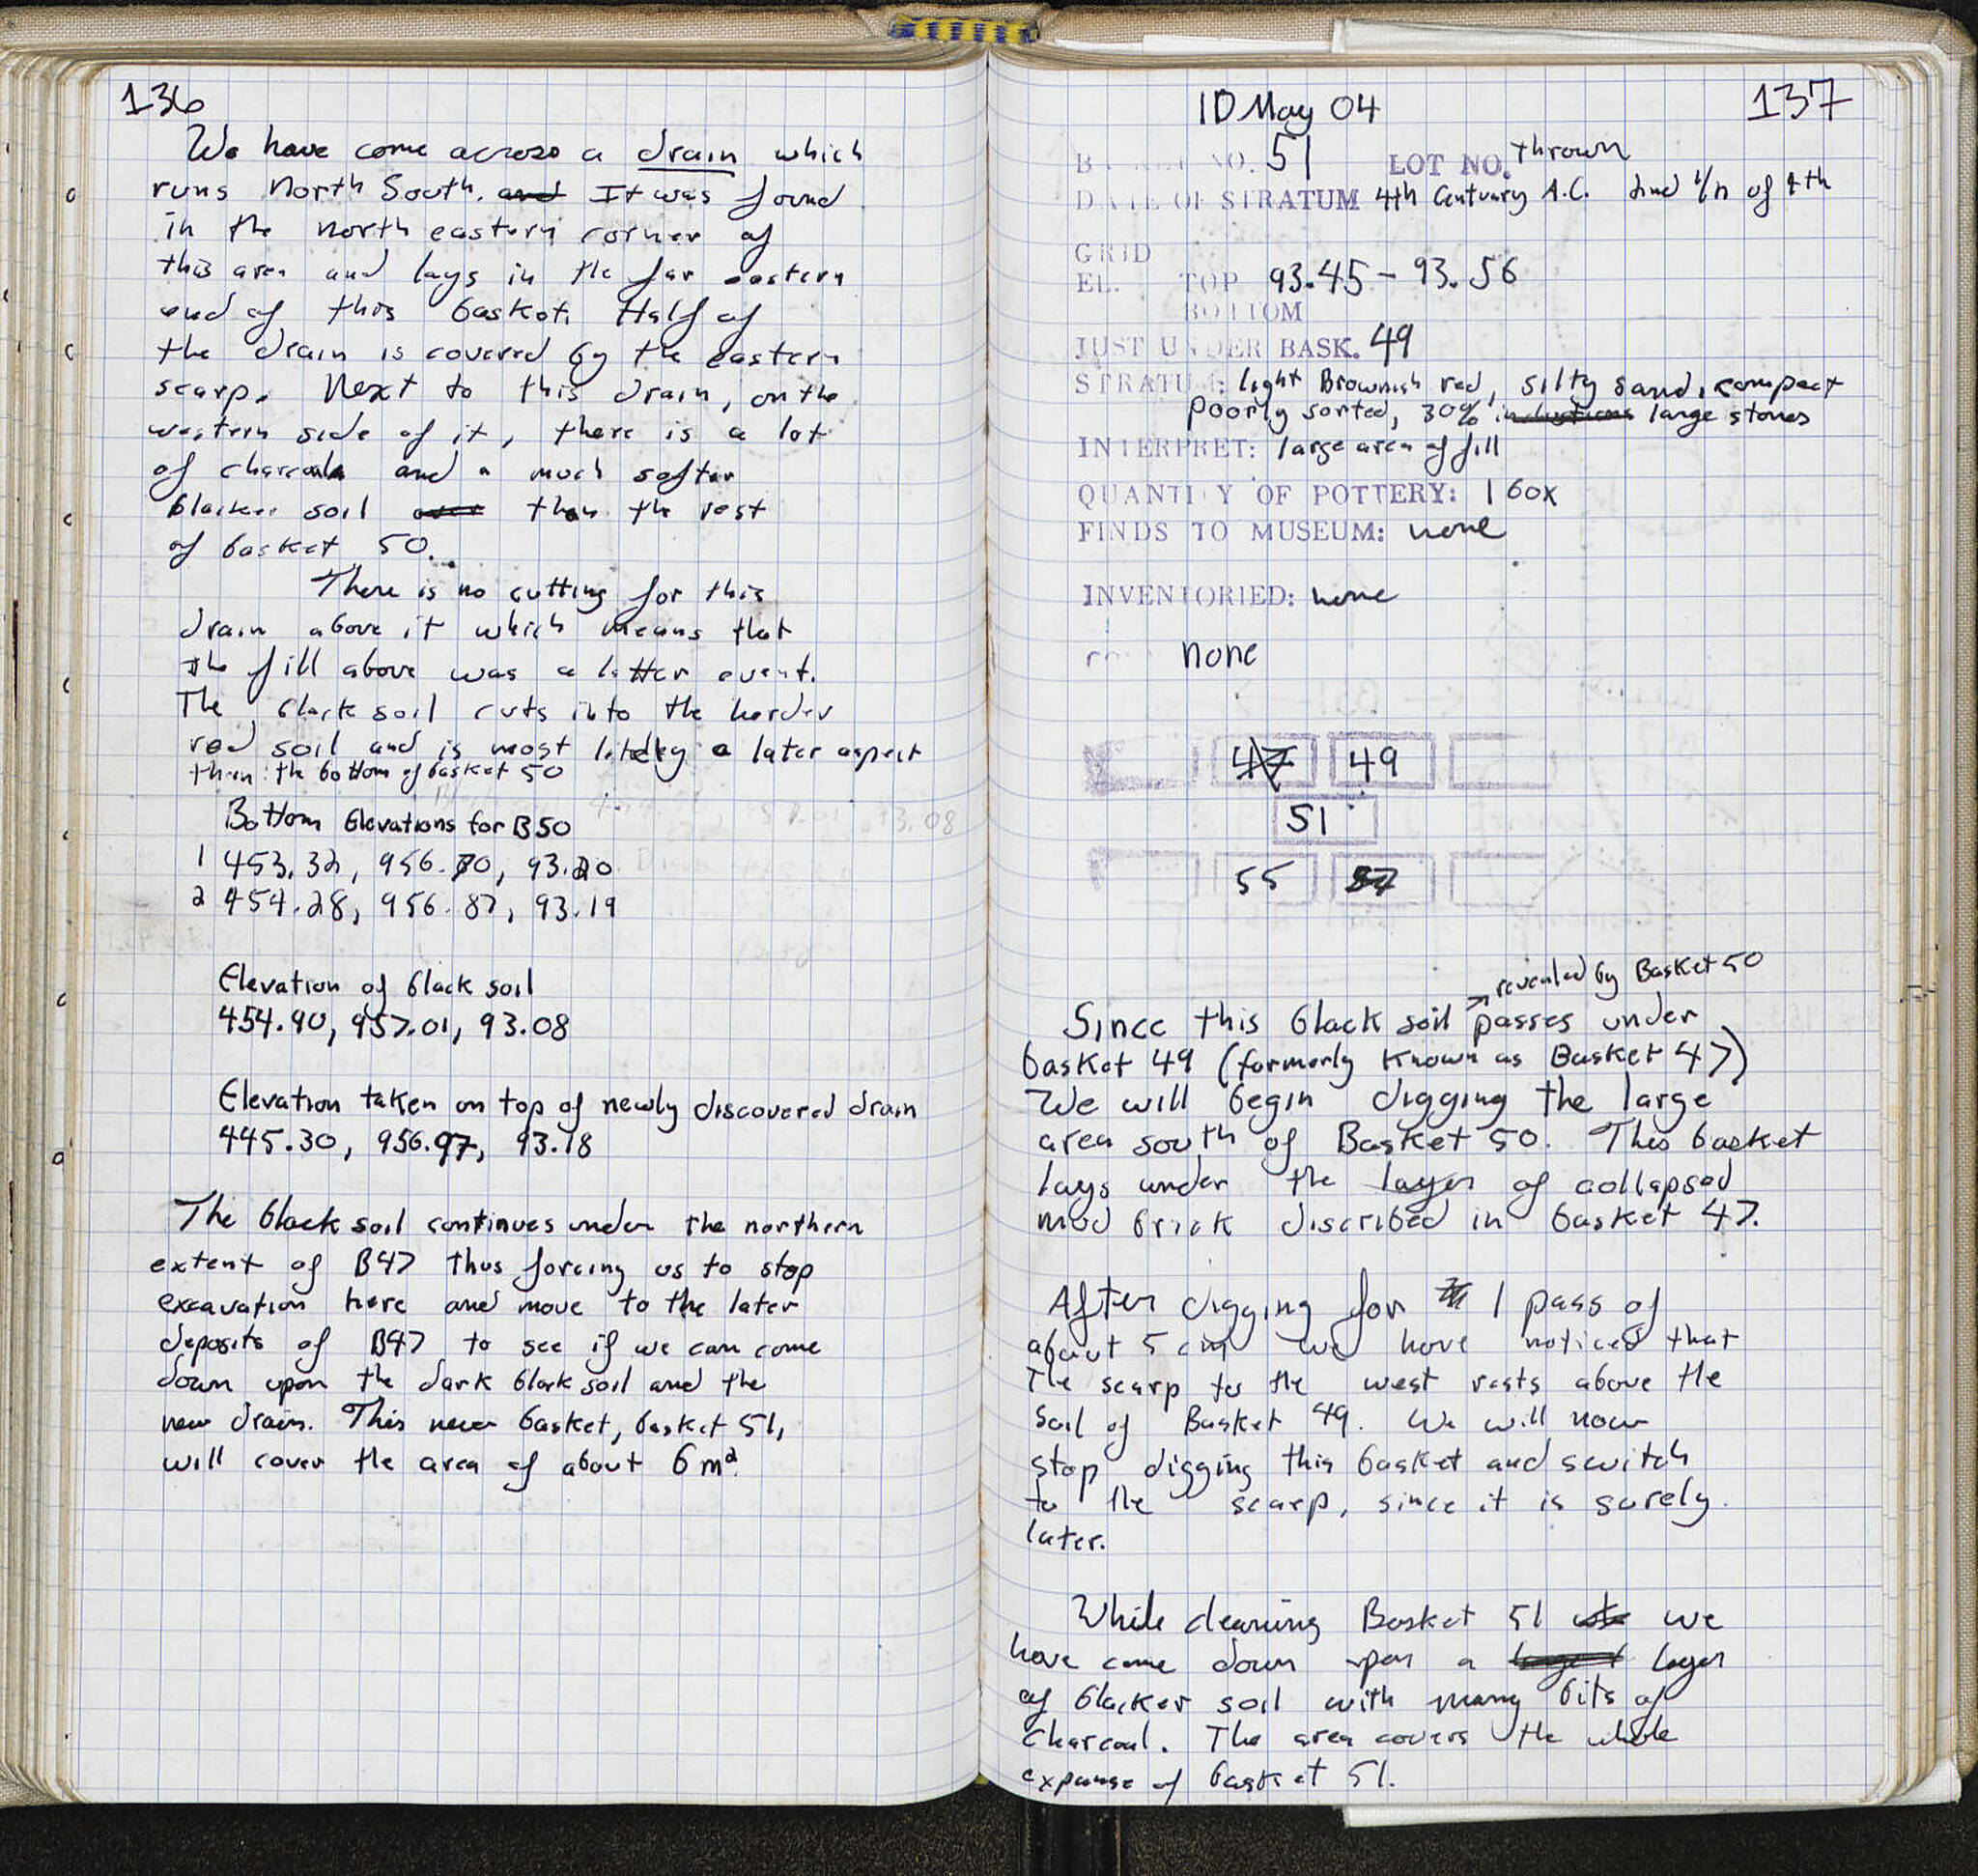 136
We have come across a drain which
runs North South. and It was found
in the north eastern corner of
this area and lays in the far eastern
end of this basket. Half of
the drain is covered by the eastern
scarp. Next to this drain, on the
western side of it, there is a lot
of charcoal and a much softer
blacker soil than the rest
of basket 50.
There is no cutting for this
drain above it which means that
the fill above was a latter event.
The black soil cuts into the harder
red soil and is most likely a later aspect
than the bottom of basket 50
Bottom Elevations for B50
1 453.32, 956.70, 93.20
2 454.28, 956.87, 93.19
Elevation of black soil
454.90, 957.01, 93.08
Elevation taken on top of newly discovered drain
445.30, 956.97, 93.18
The black soil continues under the northern
extent of B47 thus forcing us to stop
excavation here and move to the later
deposits of B47 to see if we can come
down upon the dark black soil and the
new drain. This new basket, basket 51,
will cover the area of about 6 m².
10 May 04
137
NO. 51 LOT NO. thrown
DATE OF STRATUM 4th Centuary A.C. 2nd 1/2 of 4th
GRID
EL. TOP 93.45 - 93.56
BOTTOM
JUST UNDER BASK. 49
STRATUM: light Brownish red, silty sand, compact
poorly sorted, 30% inclustions large stones
INTERPRET: large area of fill
QUANTITY OF POTTERY: 1 box
FINDS TO MUSEUM: none
INVENTORIED: none
none
47 49
51
55
revealed by Basket 50
Since this black soil passes under
basket 49 (formerly known as Basket 47)
We will begin digging the large
area south of Basket 50. This basket
lays under the layer of collapsed
mud brick discribed in basket 47.
After digging for 1 pass of
about 5 cm we have noticed that
The scarp to the west rests above the
soil of Basket 49. We will now
stop digging this basket and switch
to the scarp, since it is surely
later.
While cleaning Basket 51 we
have come down upon a layer
of blacker soil with many bits of
charcoal. The area covers the whole
expanse of basket 51.